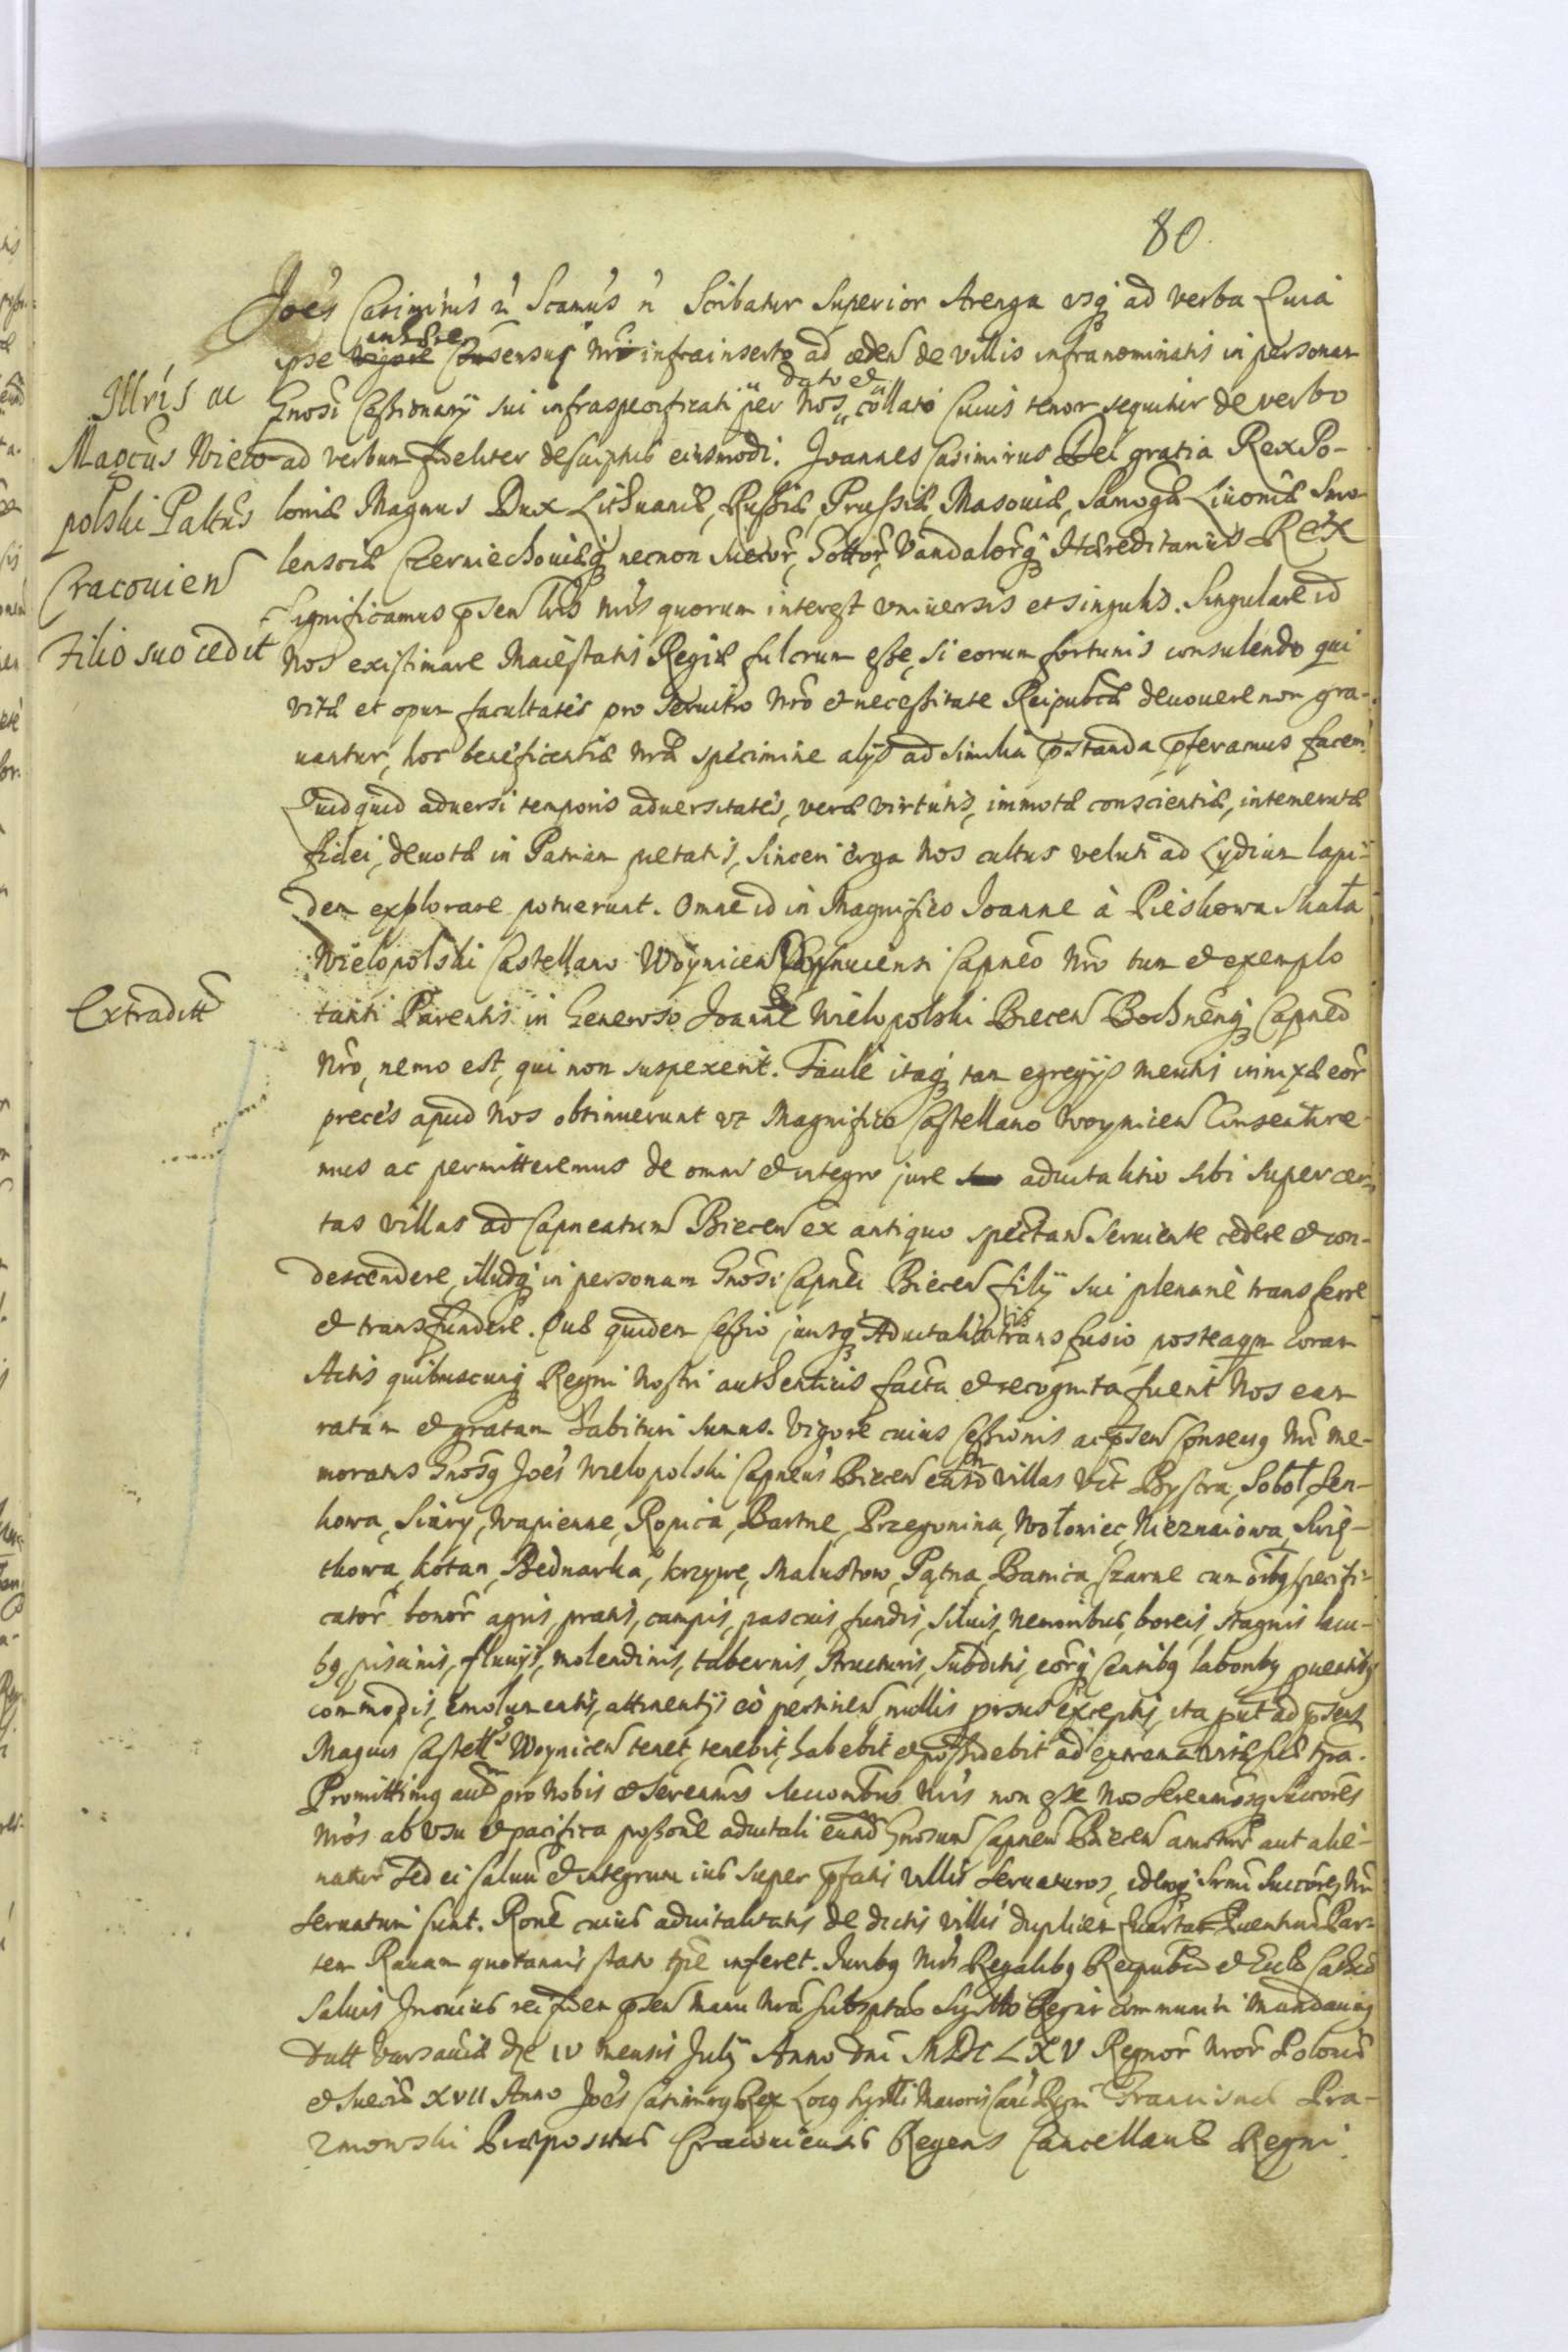 80
Joēs Casimirus n̄ Scamus n̄ Scibatur Superior Arenga usq ad verba Quia
ipse authore Consensus Nri infrainserto ad ceden de villis infranominatis in personam
Illris ac
Gnosi Cessionarÿ sui infraspecificati per Nos dato et collato Cuius tenor sequitur de verbo
Magcus Wielo-
ad verbum fideliter descriptus eiusmodi. Joannes Casimirus Dei gratia Rex Po-
polski Paltus
loniæ Magnus Dux Lithuaniæ, Russiæ, Prussiæ, Masoviæ, Samogæ Livoniæ Smo-
Cracovien
lensciæ Czerniechoviæq necnon Suecor, Gottor, Vandalorq Hæreditarius Rex
Filio suo cedit
Significamus psen Lris Nris quorum interest universis et singulis. Singulare id
Nos existimare Maiestatis Regiæ fulcrum esse, si eorum fortunis consulendo qui
vitæ et opum facultates pro Servitio Nro et necessitate Reipubcæ devovere non gra-
vantur, hoc beneficentiæ Nræ specimine alÿs ad similia pstanda pferamus facem
Quidquid adversi temporis adversitates, veræ virtutis, immotæ conscientiæ, intemeratæ
fidei, devotæ in Patriam pietatis, Sinceri erga Nos cultus veluti ad Lydium lapi-
dem explorare potuerunt. Omne id in Magnifico Joanne à Pieskowa Skała
Wielopolski Castellano Woynicen Capneo Nro tum et exemplo
Extraditt
tanti Parentis in Generoso Joanne Wielopolski Biecen Bochnenq Capneo
Nro, nemo est, qui non suspexerit. Facile itaq tam egregÿs meritis innixæ eor
preces apud Nos obtinuerunt ut Magnifico Castellano Woynicen Consentire-
mus ac permitteremus de omni et integro jure advitalitio sibi super cer-
tas villas ad Capneatum Biecen ex antiquo spectan Serviente cedere et con-
descendere, illudq in personam Gnosi Capnei Biecen filÿ sui plenarie transferre
et transfundere. Quæ quidem Cessio jurisq Advitalitis transfusio posteaqm coram
Actis quibuscunq Regni Nostri authenticis facta et recognita fuerit Nos eam
ratam et gratam habituri sumus. Vigore cuius Cessionis ac psen Consensq Nri me-
moratus Gnosq Joēs Wielopolski Capneus Biecen easdm villas vīt Bystra, Sobol, Sen-
kowa, Siary, Wapienne, Ropica, Bartne, Przegonina, Wołoniec, Nieznaiowa, Swię-
tkowa, Kotan, Bednarka, Krzywe, Malastow, Pętna, Banica, Czarne cum oibq specifi-
cator bonor agris, pratis, campis, pascuis, fundis, Siluis, Nemoribus, boreis, Stagnis lacu-
bq, piscinis, fluvÿs, molendinis, tabernis, Structuris, Subditis, eorq Censibq laboribq pventibq
commodis, emolumentis, attinentÿs eò pertinen nullis prsus exceptis, ita put ad psens
Magcus Castells Woynicen tenet, tenebit, habebit et possidebit ad extrema vitæ suæ tpra.
Promittimq autm pro Nobis et Serenmis Successoribus Nris non esse Nos Serenmosq Succores
Nros ab usu et pacifica possone advitali eundm Gnosum Capneu Biecen amoturos aut alie-
naturos Sed ei saluum et integrum ius super pfatis villis Servaturos, idemq Srmi Succores Nri
Servaturi sunt. Rone cuius advitalitatis de dictis villis duplicem Quartæ Pventuum Par-
tem Ravam quotannis stato tpre inferet. Juribq Nris Regalibq Reipubcæ et Eccls Cathcæ
Saluis In cuius rei fidem psen manu Nra subsptas Sigillo Regni communiri mandavimq
Datt Varsaviæ die IV mensis Julÿ Anno dni MDCLXV Regnor Nror Poloniæ
et Sueciæ XVII Anno Joēs Casimirq Rex Locq Sigilli Maioris Canc Regni Franciscus Pra-
zmowski Præpositus Cracoviensis Regens Cancellariæ Regni